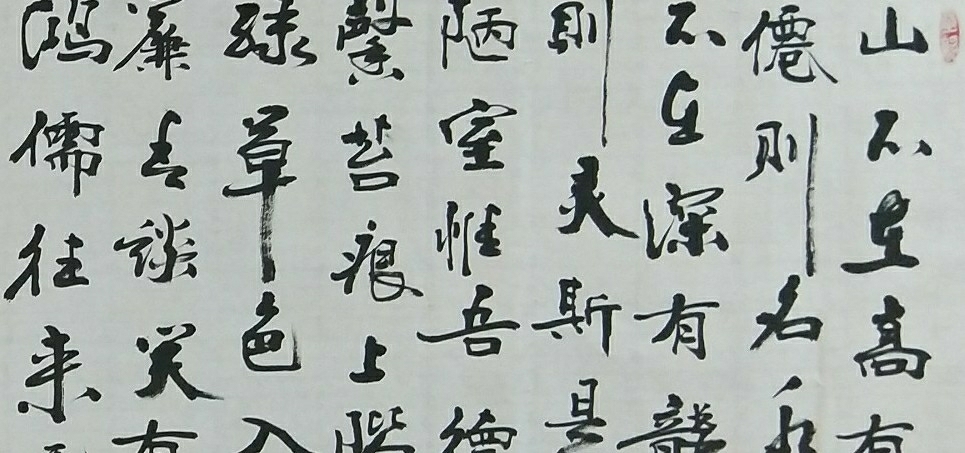 山不在高有
僊则名水
不在深有龍
则灵斯是
陋室惟吾德
馨苔痕上階
绿草色入
簾青談笑有
鴻儒往来